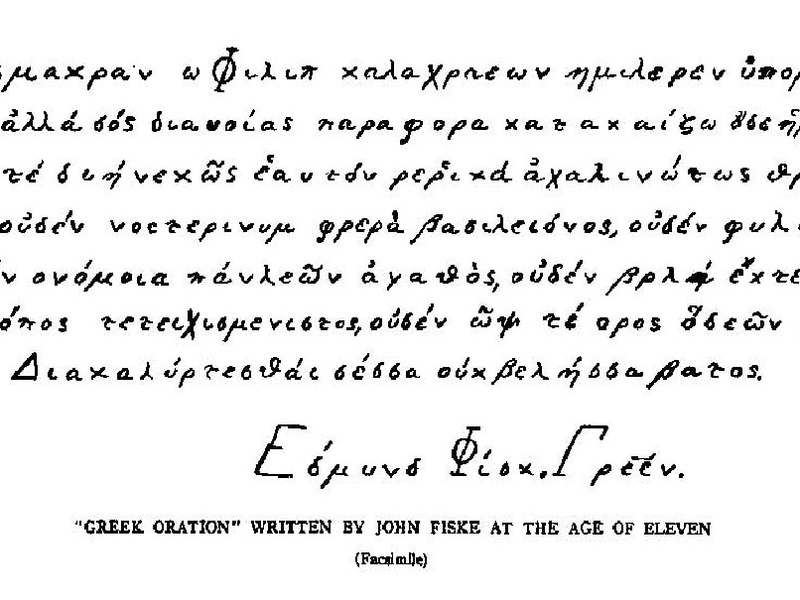 μακραν ω Φιλιπ χαλαχραεων ημιλερεν ὑπορ
ἀλλά σός διανοίας παραφορα κατακαίζω
τέ διήνεκῶς ἑαυτόν ἀχαλινώτως θρ
οὐδέν νοστερινυμ φρερὰ βασιλειόνος, οὐδέν φυλ
ν ονόμοια πάνλεῶν ἀγαθὸς, οὐδέν ἐκτε
όπος τετειχισμενιστος, οὐδέν ῶψ τέ ορος ὅδεῶν
Διακαλύρτεσθάι σέσσα οὐκ βελήσσα βατος.
Εδμυνδ Φίσκ. Γρεέν.
"GREEK ORATION" WRITTEN BY JOHN FISKE AT THE AGE OF ELEVEN
(Facsimile)